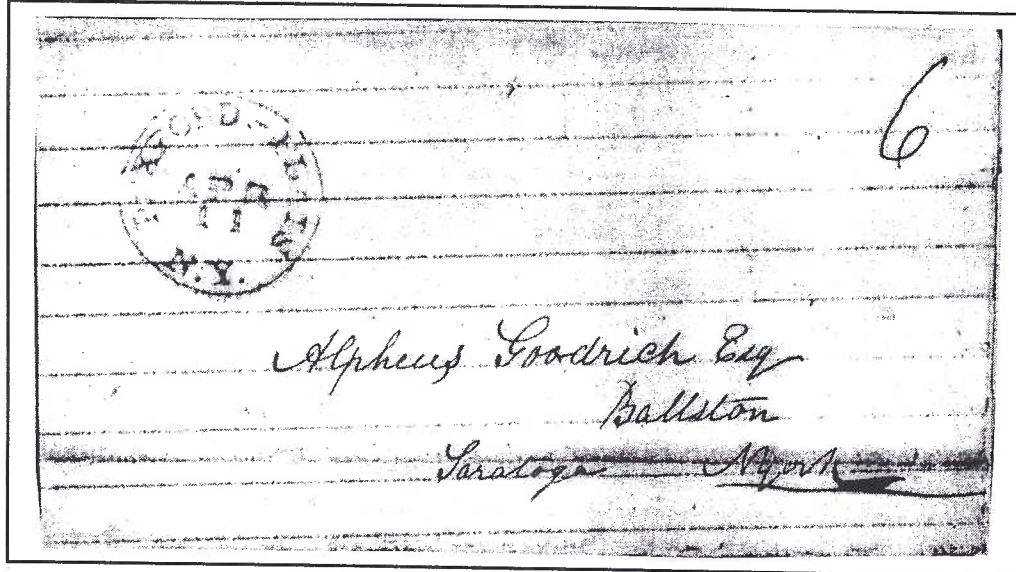 6
APR
11
N.Y.
Alpheus Goodrich Esq
Ballston
Saratoga N York